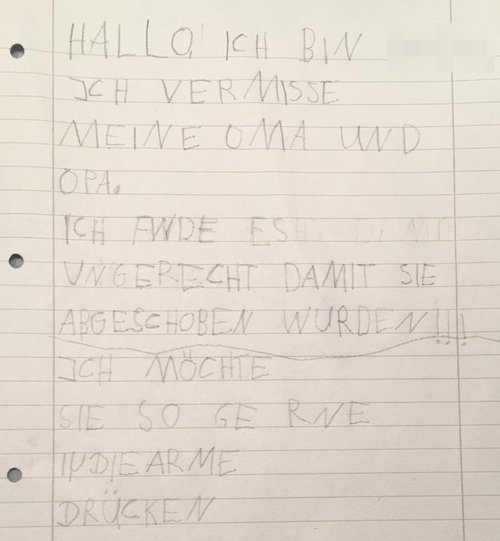 HALLO ICH BIN
ICH VERMISSE
MEINE OMA UND
OPA.
ICH FINDE ES
UNGERECHT DAMIT SIE
ABGESCHOBEN WURDEN!!!
ICH MÖCHTE
SIE SO GE RNE
IN DIE ARME
DRÜCKEN